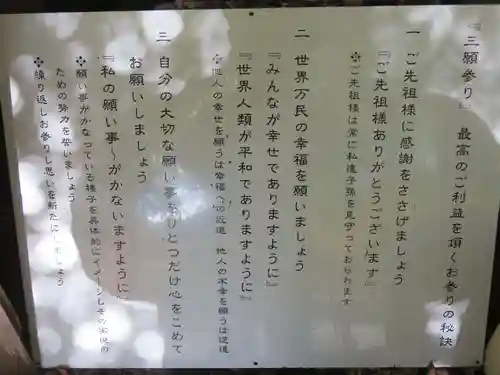 『三願参り』 最高のご利益を頂くお参りの秘訣
一 ご先祖様に感謝をささげましょう
『ご先祖様ありがとうございます』
※ご先祖様は常に私達子孫を見守っておられます
二 世界万民の幸福を願いましょう
『みんなが幸せでありますように』
『世界人類が平和でありますように』
※他人の幸せを願うは幸福への近道 他人の不幸を願うは逆道
三 自分の大切な願い事をひとつだけ心をこめて
お願いしましょう
『私の願い事～がかないますように』
※願い事がかなっている様子を具体的にイメージしその実現の
ための努力を誓いましょう
※繰り返しお参りし思いを新たにしましょう